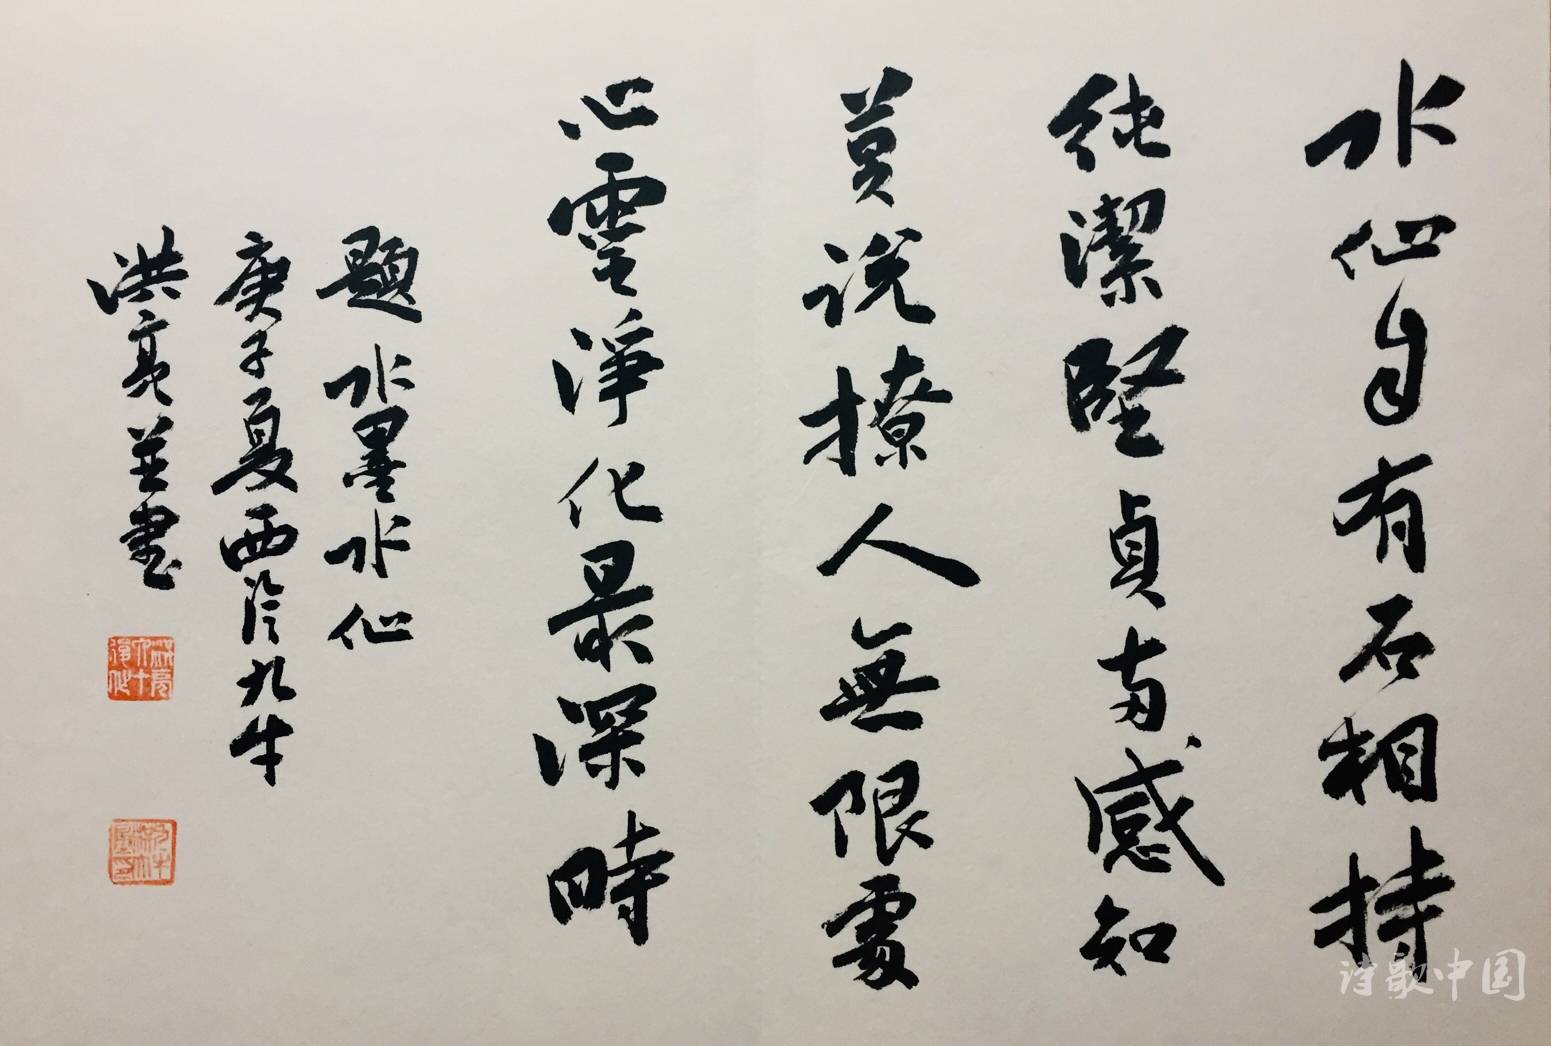 水仙自有石相持
純潔堅貞両感知
莫说撩人無限處
心靈淨化最深時
題水墨水仙
庚子夏西泠九牛
洪亮並書
诗歌中国